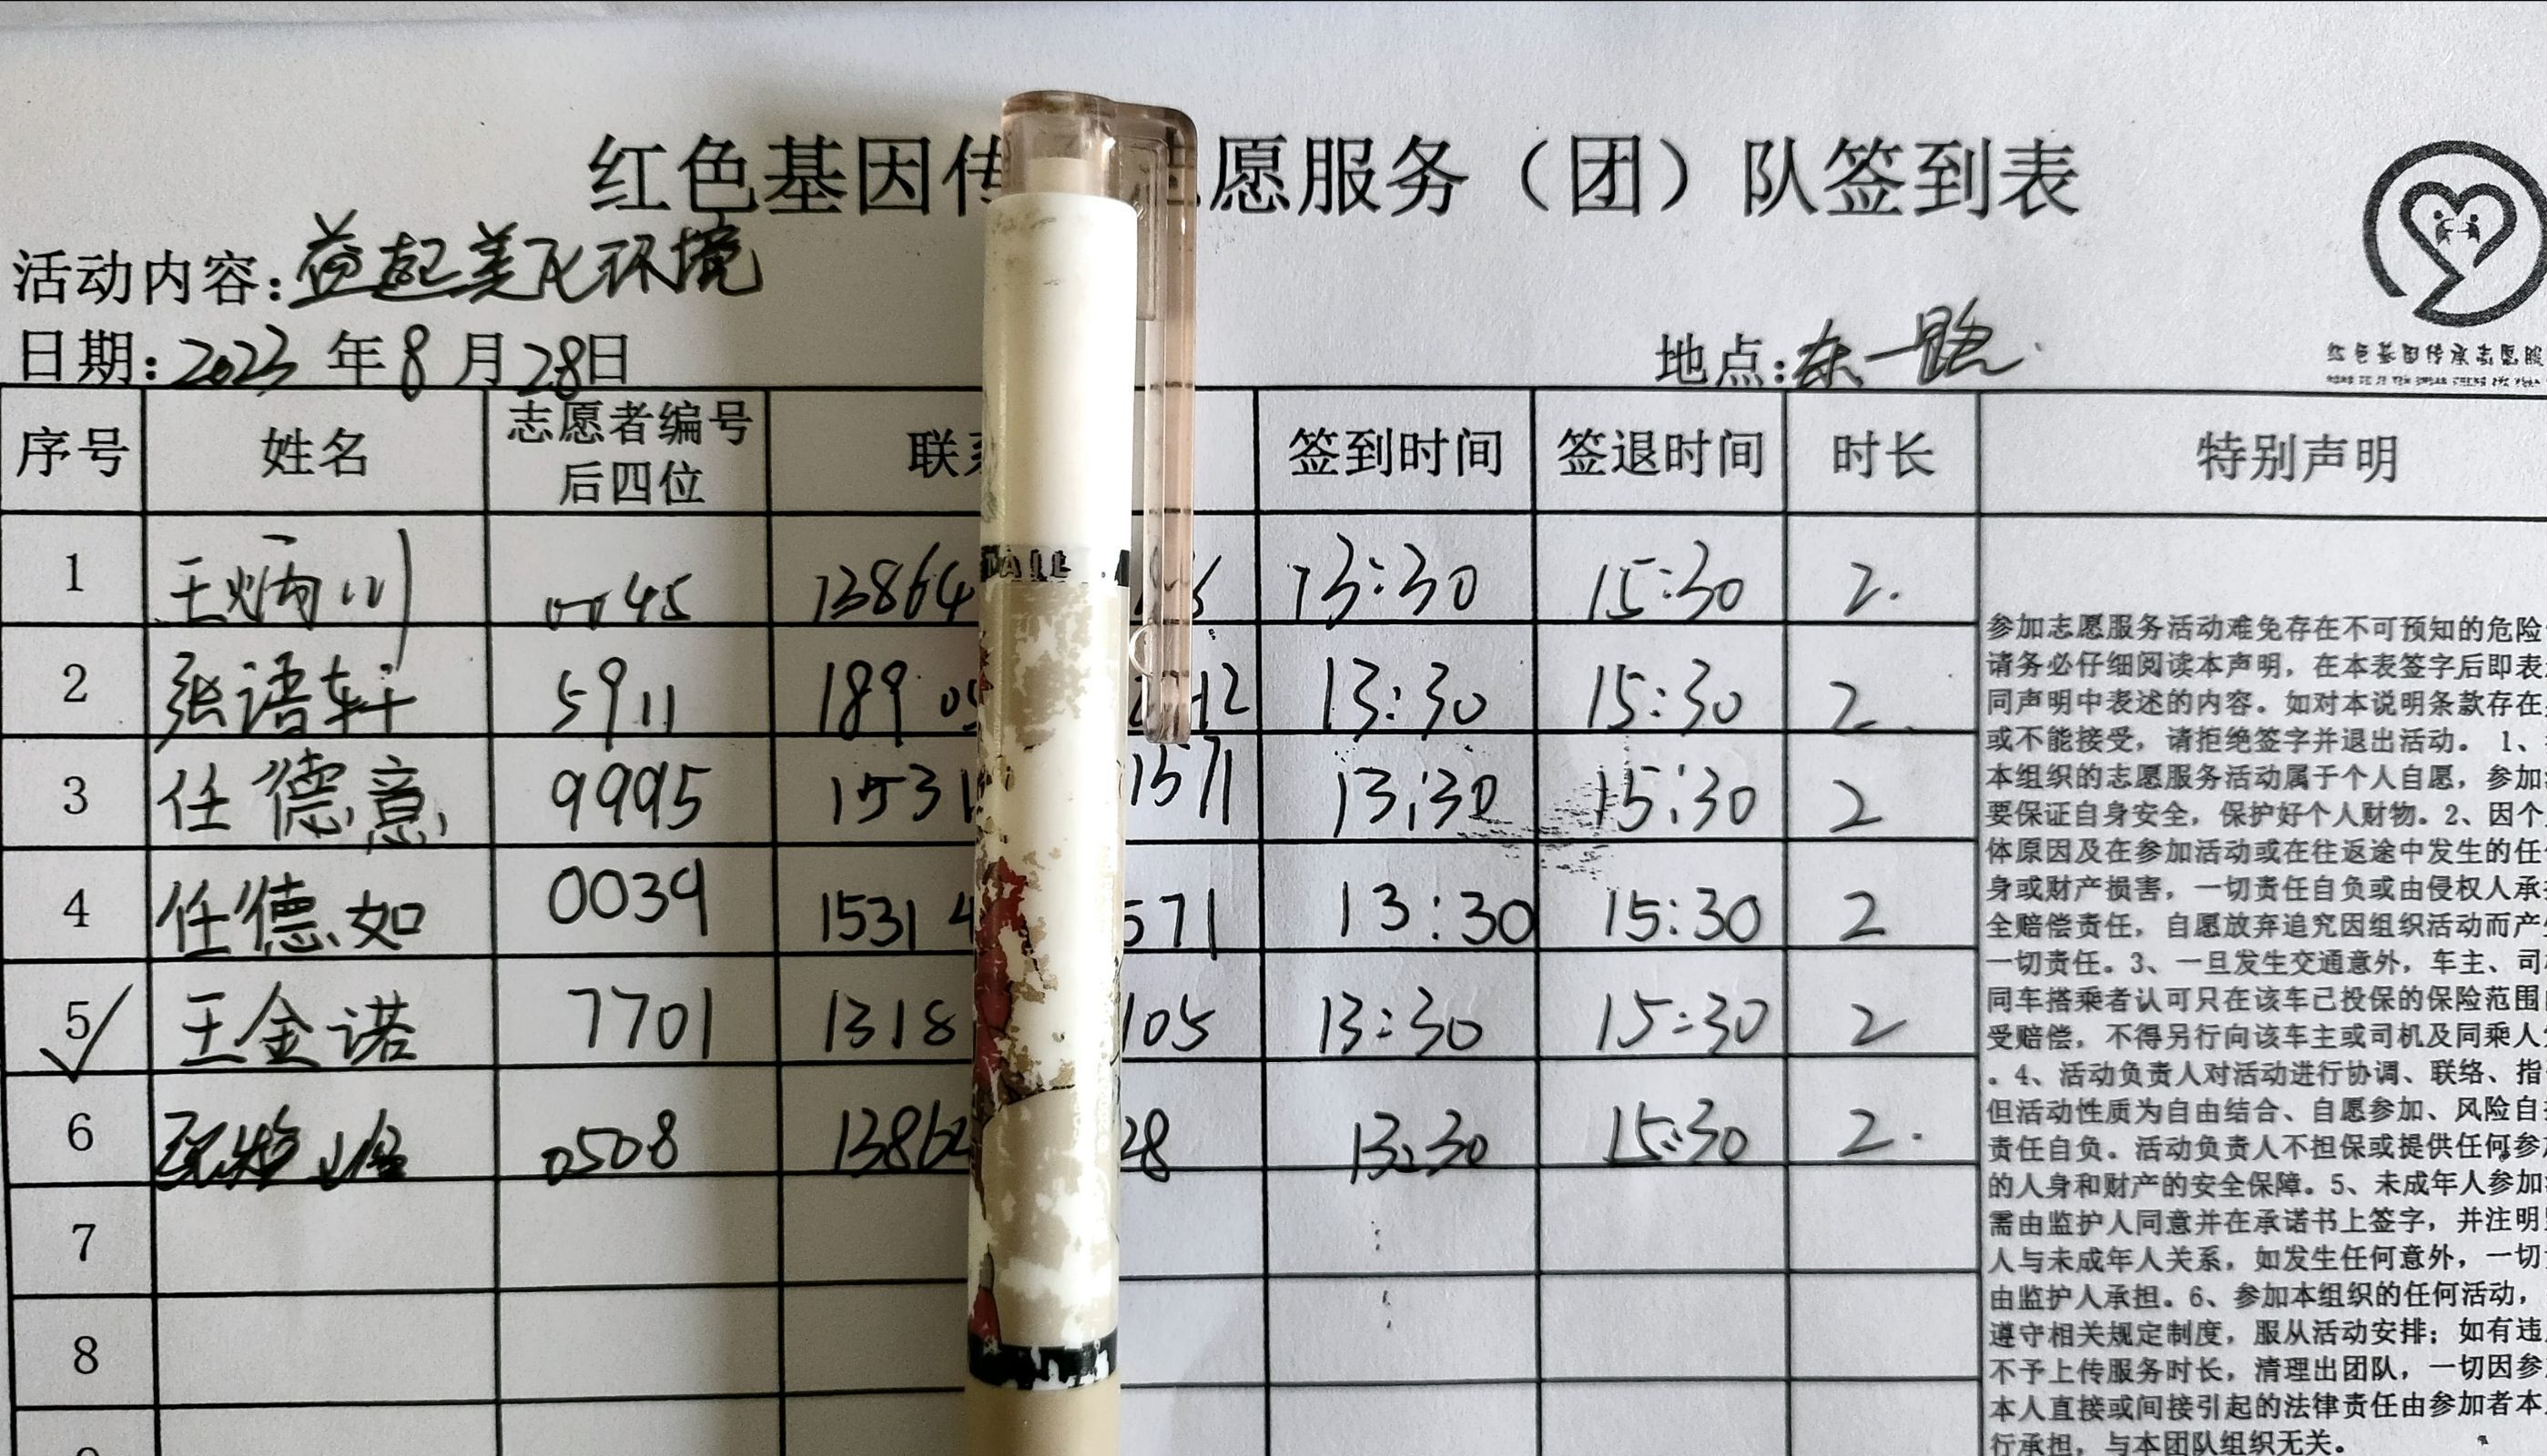 红色基因传 愿服务（团）队签到表
活动内容：益起美化环境
日期：2023 年 8 月 28日 地点：东一路
红色基因传承志愿服
序号 姓名 志愿者编号后四位 联 签到时间 签退时间 时长 特别声明
1 王炳川 0045 13864 13:30 15:30 2.
2 张语轩 5911 189 05 12 13:30 15:30 2
3 任德意 9995 1531 1571 13:30 15:30 2
4 任德如 0039 1531 4 571 13:30 15:30 2
5 王金诺 7701 1318 105 13:30 15:30 2
6 0508 1386 28 13:30 15:30 2.
7
8
参加志愿服务活动难免存在不可预知的危险
请务必仔细阅读本声明，在本表签字后即表
同声明中表述的内容。如对本说明条款存在
或不能接受，请拒绝签字并退出活动。 1、
本组织的志愿服务活动属于个人自愿，参加
要保证自身安全，保护好个人财物。2、因个
体原因及在参加活动或在往返途中发生的任
身或财产损害，一切责任自负或由侵权人承
全赔偿责任，自愿放弃追究因组织活动而产
一切责任。3、一旦发生交通意外，车主、司
同车搭乘者认可只在该车已投保的保险范围
受赔偿，不得另行向该车主或司机及同乘人
。4、活动负责人对活动进行协调、联络、指
但活动性质为自由结合、自愿参加、风险自
责任自负。活动负责人不担保或提供任何参
的人身和财产的安全保障。5、未成年人参加
需由监护人同意并在承诺书上签字，并注明
人与未成年人关系，如发生任何意外，一切
由监护人承担。6、参加本组织的任何活动，
遵守相关规定制度，服从活动安排；如有违
不予上传服务时长，清理出团队，一切因参
本人直接或间接引起的法律责任由参加者本
行承担，与本团队组织无关。